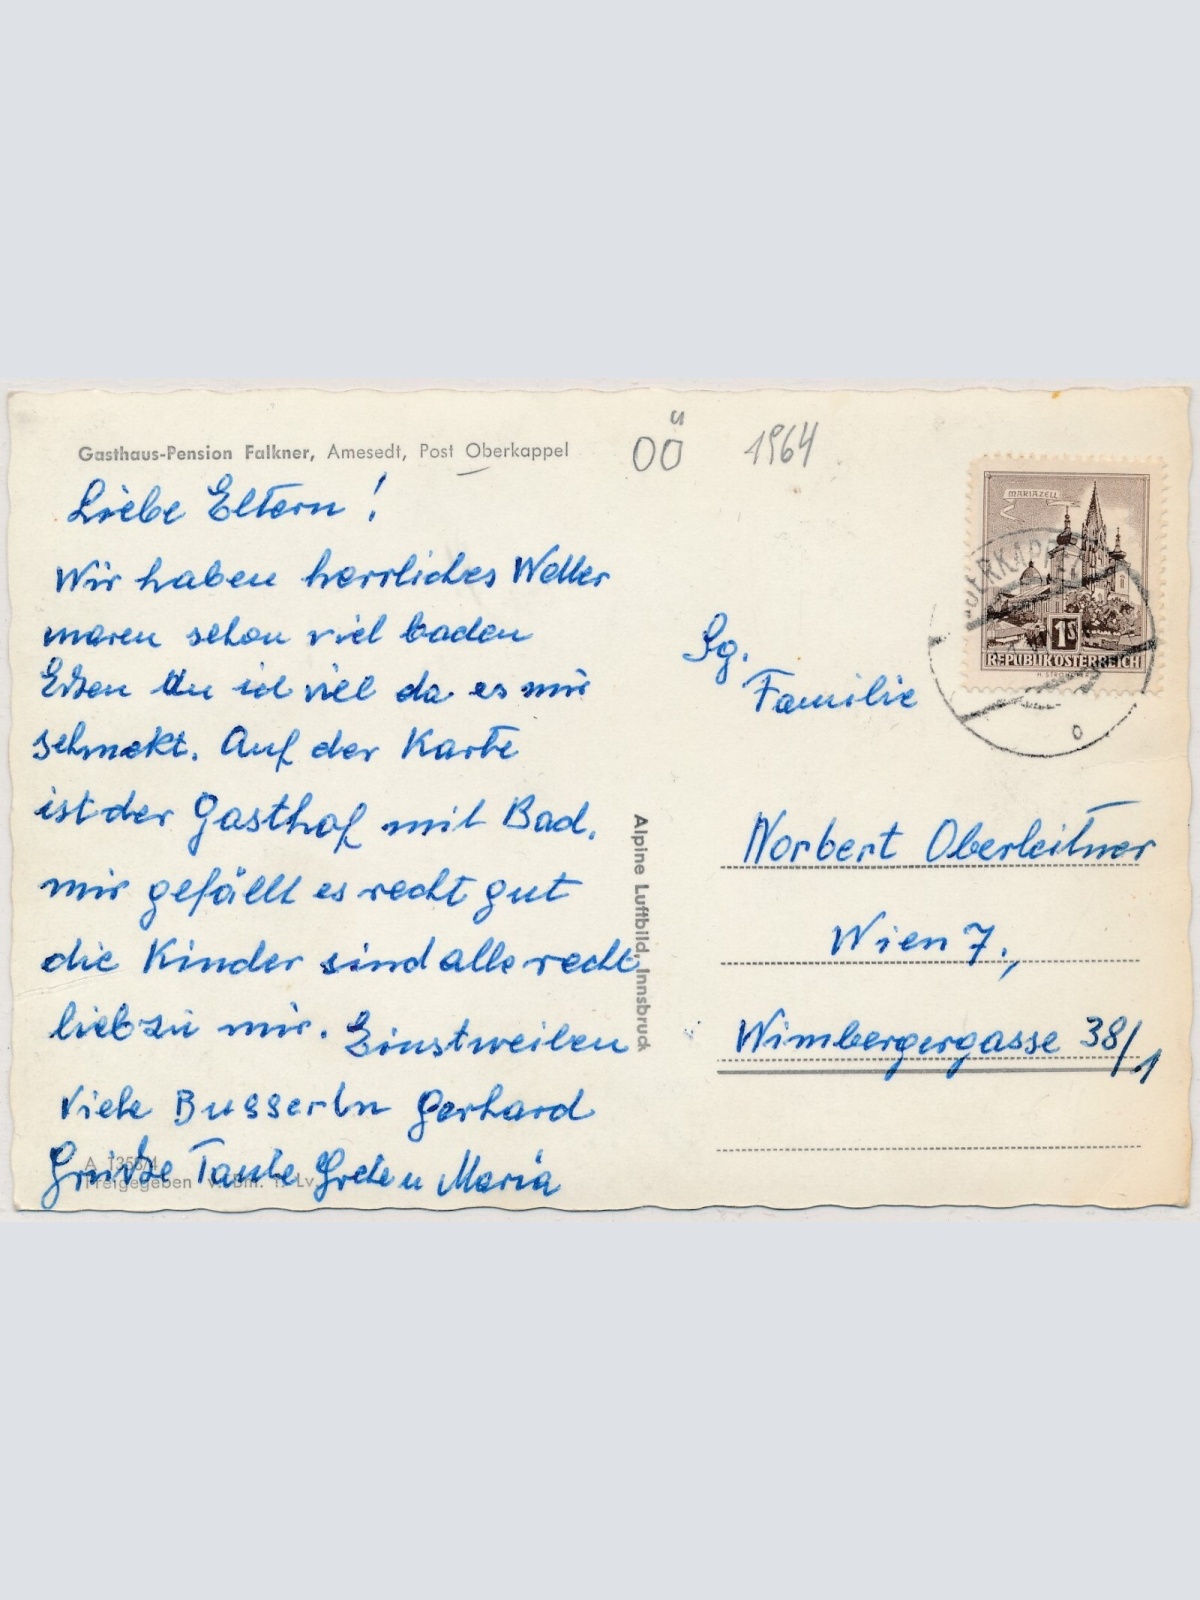 Gasthaus-Pension Falkner, Amesedt, Post Oberkappel
OÖ 1964
Liebe Eltern!
Wir haben herrliches Wetter
waren schon viel baden
Essen tu ich viel da es mir
schmekt. Auf der Karte
ist der Gasthof mit Bad.
mir gefällt es recht gut
die Kinder sind alle recht
lieb zu mir. Einstweilen
Viele Busserln Gerhard
Grüße Tante Grete u Maria
A 1356/4
Freigegeben v. Bm. f. Lv.
Alpine Luftbild, Innsbruck
MARIAZELL
1S
REPUBLIK ÖSTERREICH
OBERKAPPEL
Sg.
Familie
Norbert Oberleitner
Wien 7.,
Wimbergergasse 38/1